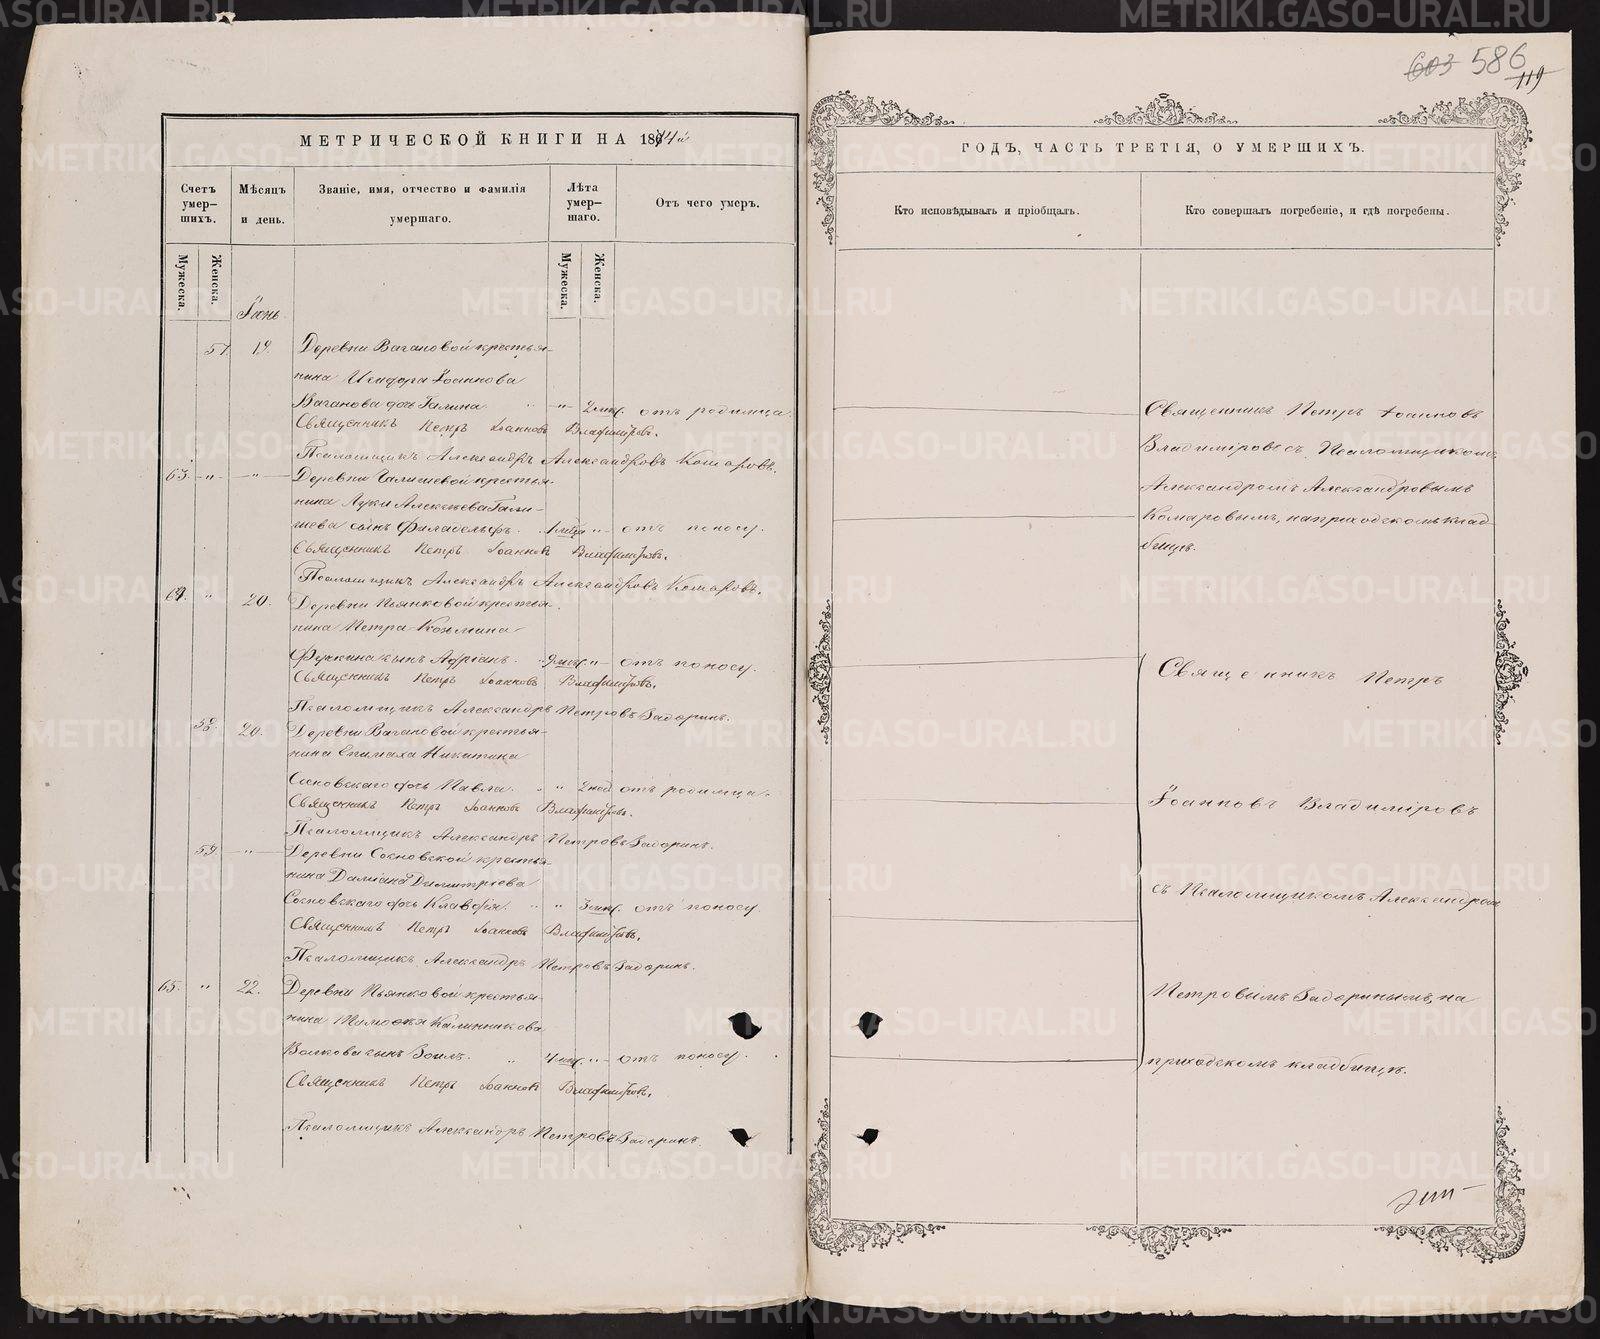 603 586
119
МЕТРИЧЕСКОЙ КНИГИ НА 1874й
Счетъ умер-шихъ.
Мѣсяцъ и день.
Званіе, имя, отчество и фамилія умершаго.
Лѣта умер-шаго.
Отъ чего умеръ.
Мужеска.
Женска.
Мужеска.
Женска.
Іюнь
57. 19. Деревни Вагановой крестья-
нина Исидора Іоаннова
Ваганова дочь Галина " 2 мѣс. отъ родимца.
Священникъ Петръ Іоанновъ Владиміровъ.
Псаломщикъ Александръ Александровъ Комаровъ.
63. " " Деревни Галишевой крестья-
нина Луки Алексѣева Гали-
шева сынъ Филадельфъ. " отъ поносу.
Священникъ Петръ Іоанновъ Владиміровъ.
Псаломщикъ Александръ Александровъ Комаровъ.
64. " 20. Деревни Пьянковой крестья-
нина Петра Козьмина
сынъ Адріанъ. 9 мѣс. " отъ поносу.
Священникъ Петръ Іоанновъ Владиміровъ.
Псаломщикъ Александръ Петровъ Задоринъ.
58. 20. Деревни Вагановой крестья-
нина Епимаха Никитина
Сосновскаго дочь Павла. " " 2 нед. отъ родимца.
Священникъ Петръ Іоанновъ Владиміровъ.
Псаломщикъ Александръ Петровъ Задоринъ.
59. " Деревни Сосновской крестья-
нина Даміана Димитріева
Сосновскаго дочь Клавдія. " " 3 мѣс. отъ поносу.
Священникъ Петръ Іоанновъ Владиміровъ.
Псаломщикъ Александръ Петровъ Задоринъ.
65. " 22. Деревни Пьянковой крестья-
нина Тимофея Калинникова
Волкова сынъ Зоилъ. " 4 мѣс. " отъ поносу.
Священникъ Петръ Іоанновъ Владиміровъ.
Псаломщикъ Александръ Петровъ Задоринъ.
ГОДЪ, ЧАСТЬ ТРЕТІЯ, О УМЕРШИХЪ.
Кто исповѣдывалъ и пріобщалъ.
Кто совершалъ погребеніе, и гдѣ погребены.
Священникъ Петръ Іоанновъ
Владиміровъ съ Псаломщикомъ
Александромъ Александровымъ
Комаровымъ, на приходскомъ клад-
бищѣ.
Священникъ Петръ
Іоанновъ Владиміровъ
съ Псаломщикомъ Александромъ
Петровымъ Задоринымъ, на
приходскомъ кладбищѣ.
METRIKI.GASO-URAL.RU